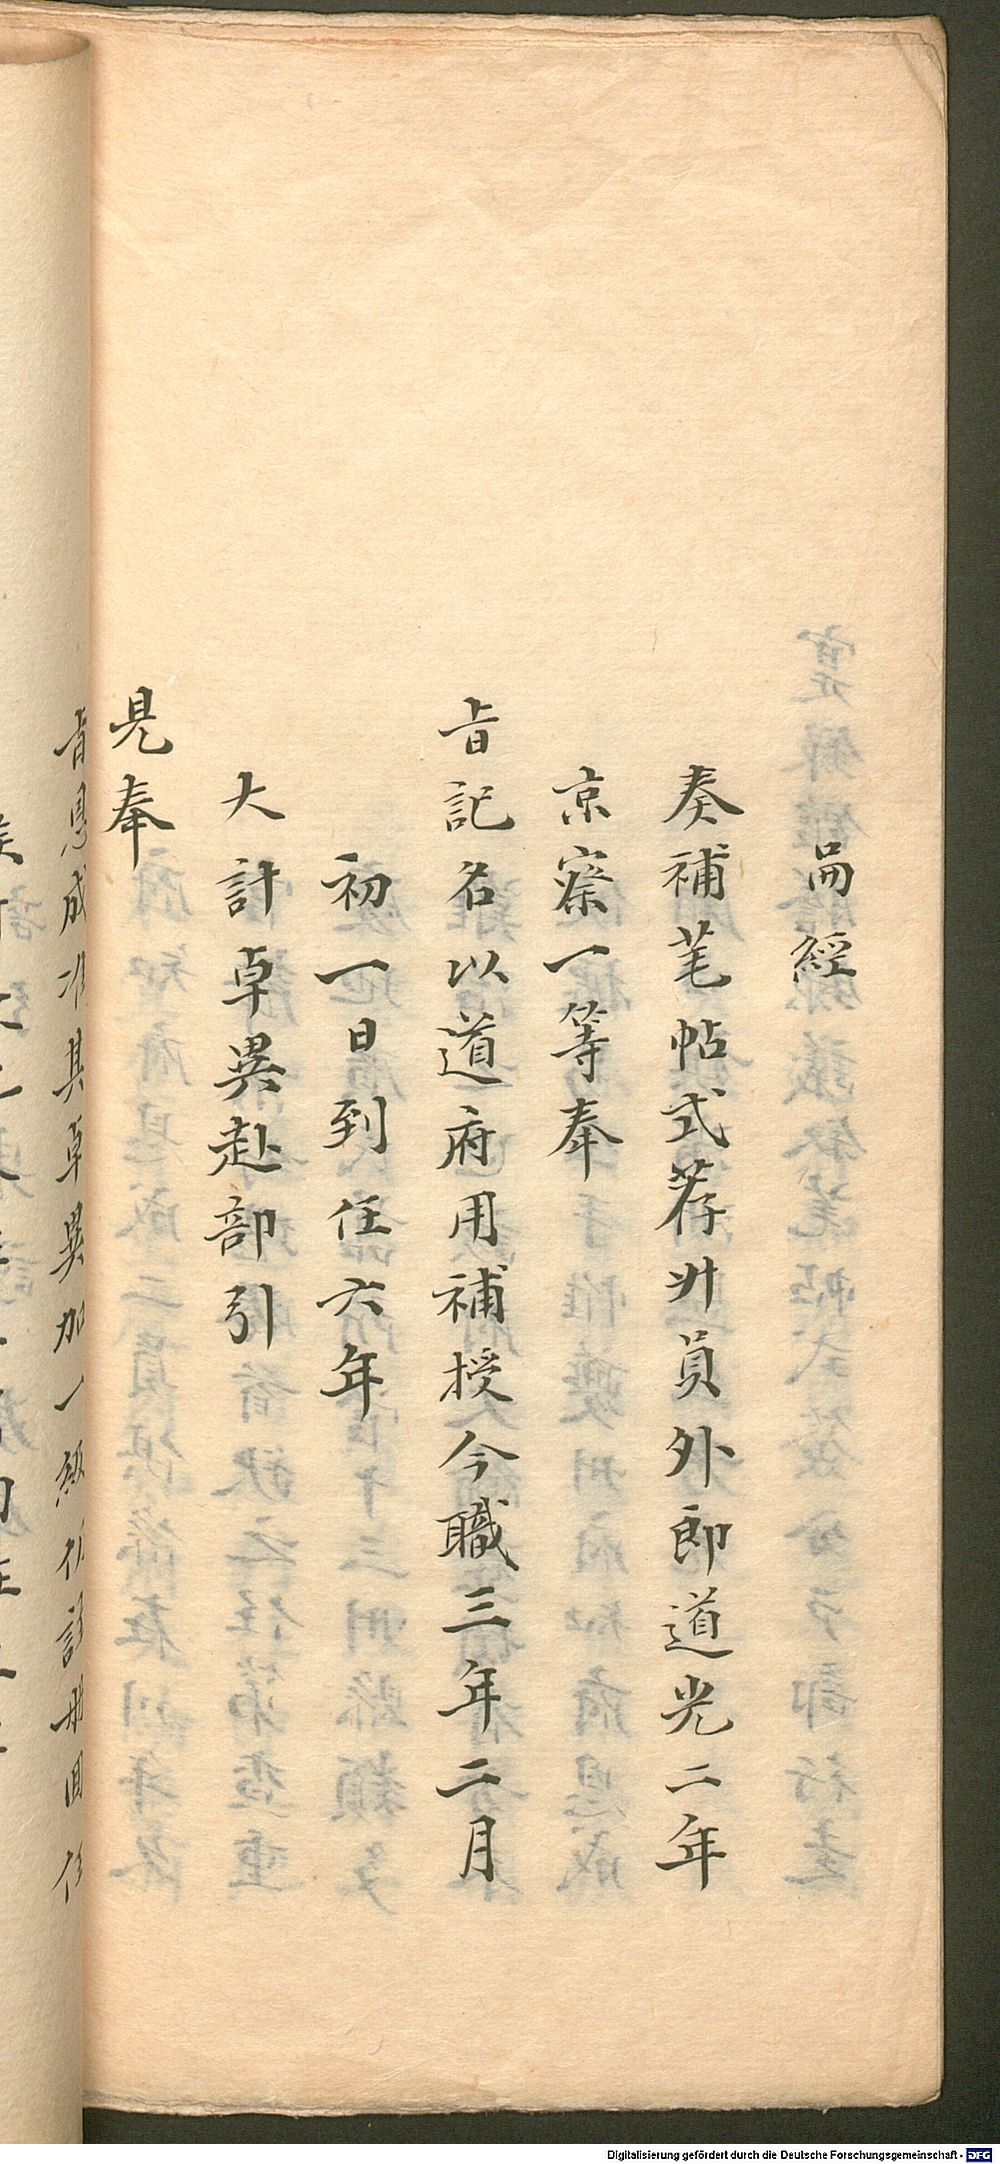 咼經
奏補茟帖式荐州員外郎道光二年
京察一等奉
旨記名以道府用補授今職三年二月
初一日到任六年
大計卓異赴部引
見奉
旨恩成准其卓異加一級仍註冊回任
Digitalisierung gefördert durch die Deutsche Forschungsgemeinschaft - DFG